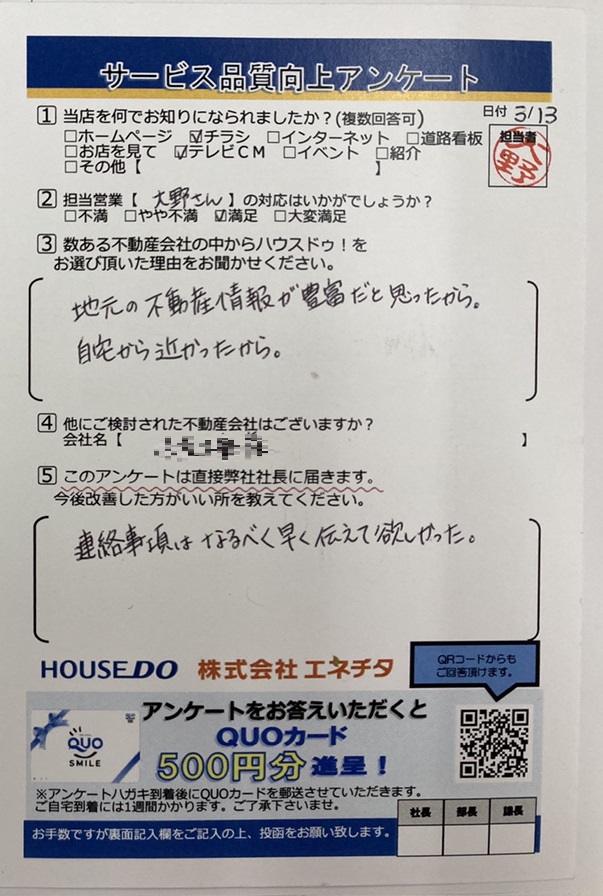 サービス品質向上アンケート
日付 3/13
1 当店を何でお知りになられましたか?(複数回答可)
□ホームページ ☑チラシ □インターネット □道路看板
□お店を見て ☑テレビCM □イベント □紹介
□その他【 】
担当者
大野
2 担当営業【 大野さん 】の対応はいかがでしょうか?
□不満 □やや不満 ☑満足 □大変満足
3 数ある不動産会社の中からハウスドゥ!を
お選び頂いた理由をお聞かせください。
地元の不動産情報が豊富だと思ったから。
自宅から近かったから。
4 他にご検討された不動産会社はございますか?
会社名【 】
5 このアンケートは直接弊社社長に届きます。
今後改善した方がいい所を教えてください。
連絡事項はなるべく早く伝えて欲しかった。
HOUSEDO 株式会社エネチタ
QRコードからも
ご回答頂けます。
アンケートをお答えいただくと
QUOカード
500円分 進呈!
QUO
SMILE
※アンケートハガキ到着後にQUOカードを郵送させていただきます。
ご自宅到着には1週間かかります。ご了承下さいませ。
社長 部長 課長
お手数ですが裏面記入欄をご記入の上、投函をお願い致します。